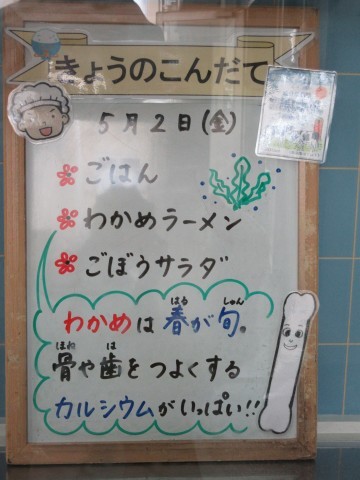 きょうのこんだて
5月2日(金)
ごはん
わかめラーメン
ごぼうサラダ
わかめは春が旬。
はる しゅん
骨や歯をつよくする
ほね は
カルシウムがいっぱい!!